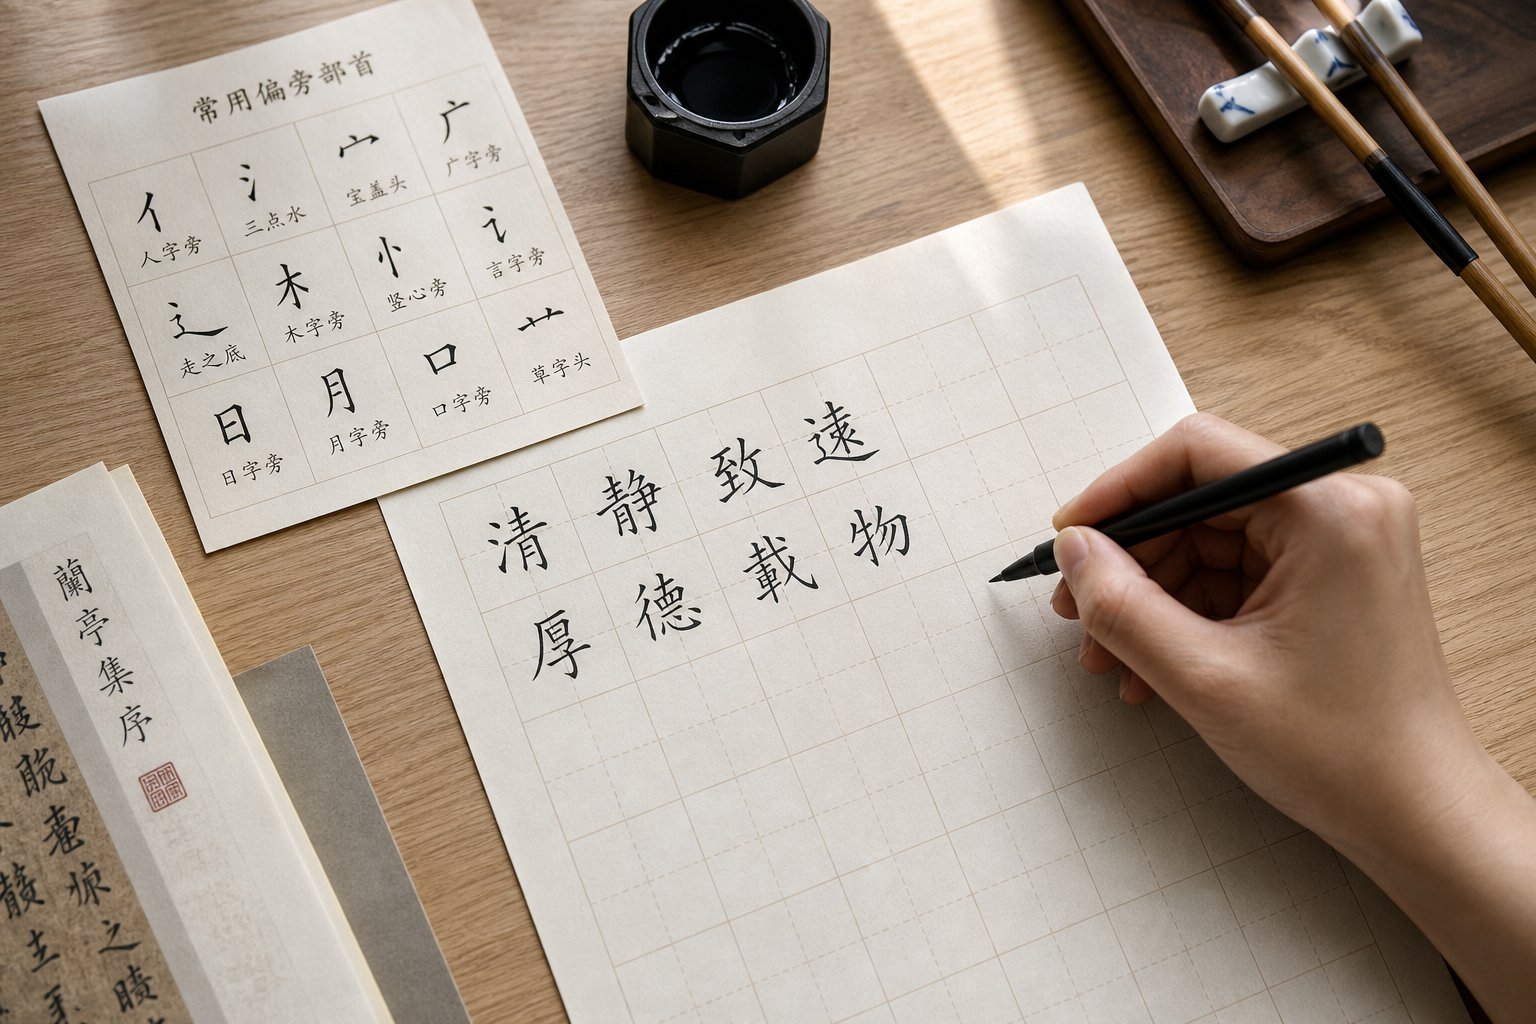 常用偏旁部首
亻 氵 宀 广
人字旁 三点水 宝盖头 广字旁
辶 木 忄 讠
走之底 木字旁 竖心旁 言字旁
日 月 口 艹
日字旁 月字旁 口字旁 草字头
清静致遠
厚德載物
蘭亭集序
之